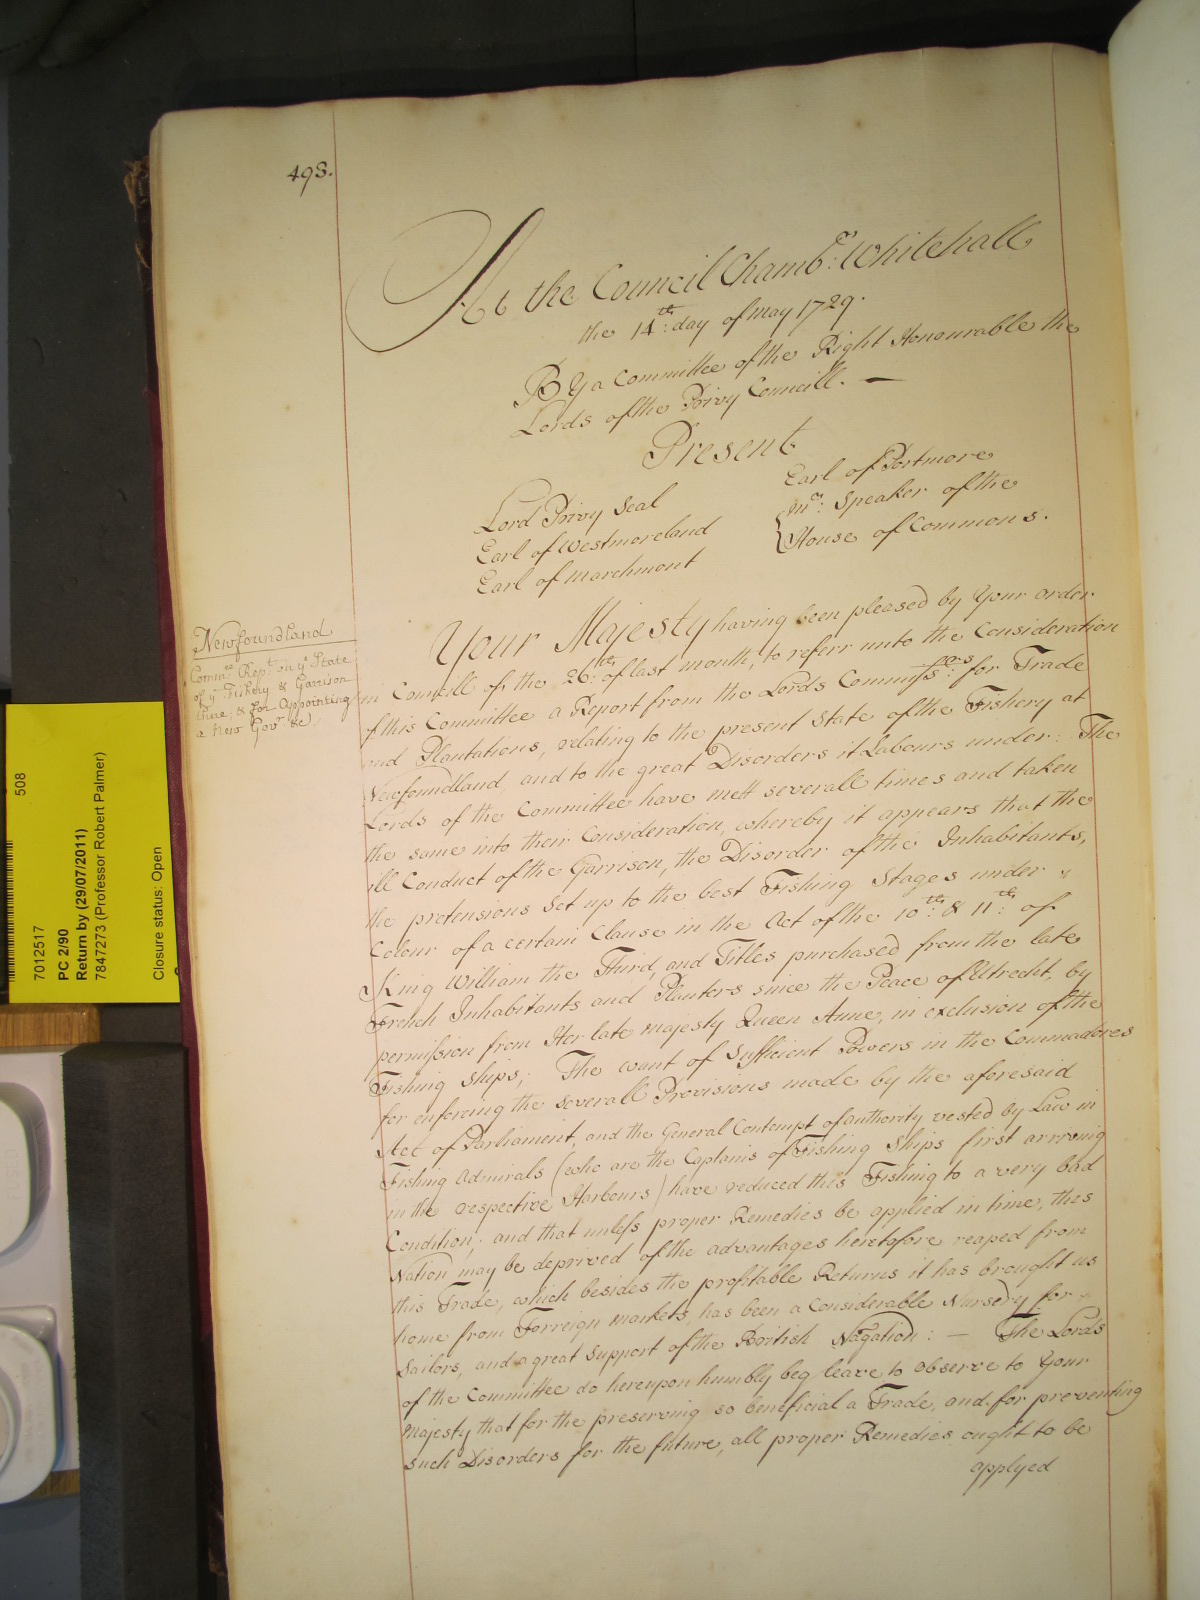 498.
At the Council Chamb:r Whitehall
the 14th: day of May 1729.
By a Committee of the Right Honourable the
Lords of the Privy Councill. —
Present
Lord Privy Seal
Earl of Westmoreland
Earl of Marchmont
Earl of Portmore
Mr: Speaker of the
House of Commons.
Newfoundland
Commee Rept. on ye State
of ye Fishery & Garrison
there; & for Appointing
a New Govr. &c)
Your Majesty having been pleased by Your order
in Councill of the 26th: of last month, to referr unto the Consideration
of this Committee a Report from the Lords Commissrs: for Trade
and Plantations, relating to the present State of the Fishery at
Newfoundland, and to the great Disorders it Labours under: The
Lords of the Committee have mett severall times and taken
the same into their Consideration, whereby it appears that the
ill Conduct of the Garrison, the Disorder of the Inhabitants,
the pretensions Set up to the best Fishing Stages under
Colour of a certain Clause in the Act of the 10th: & 11th: of
King William the Third, and Titles purchased from the late
French Inhabitants and Planters since the Peace of Utrecht, by
permission from Her late Majesty Queen Anne, in exclusion of the
Fishing Ships; The want of Sufficient Powers in the Commadores
for enforcing the Severall Provisions made by the aforesaid
Act of Parliament, and the General Contempt of authority vested by Law in
Fishing Admirals (who are the Captains of Fishing Ships first arriving
in the respective Harbours) have reduced this Fishing to a very bad
Condition; and that unless proper Remedies be applied in time, this
Nation may be deprived of the advantages heretofore reaped from
this Trade, which besides the profitable Returns it has brought us
home from Forreign Markets, has been a Considerable Nursery for
Sailors, and a great Support of the British Nagation: — The Lords
of the Committee do hereupon humbly beg leave to observe to Your
Majesty that for the preserving so beneficial a Trade, and for preventing
such Disorders for the future, all proper Remedies ought to be
applyed
508
7012517
PC 2/90
Return by (29/07/2011)
7847273 (Professor Robert Palmer)
Closure status: Open